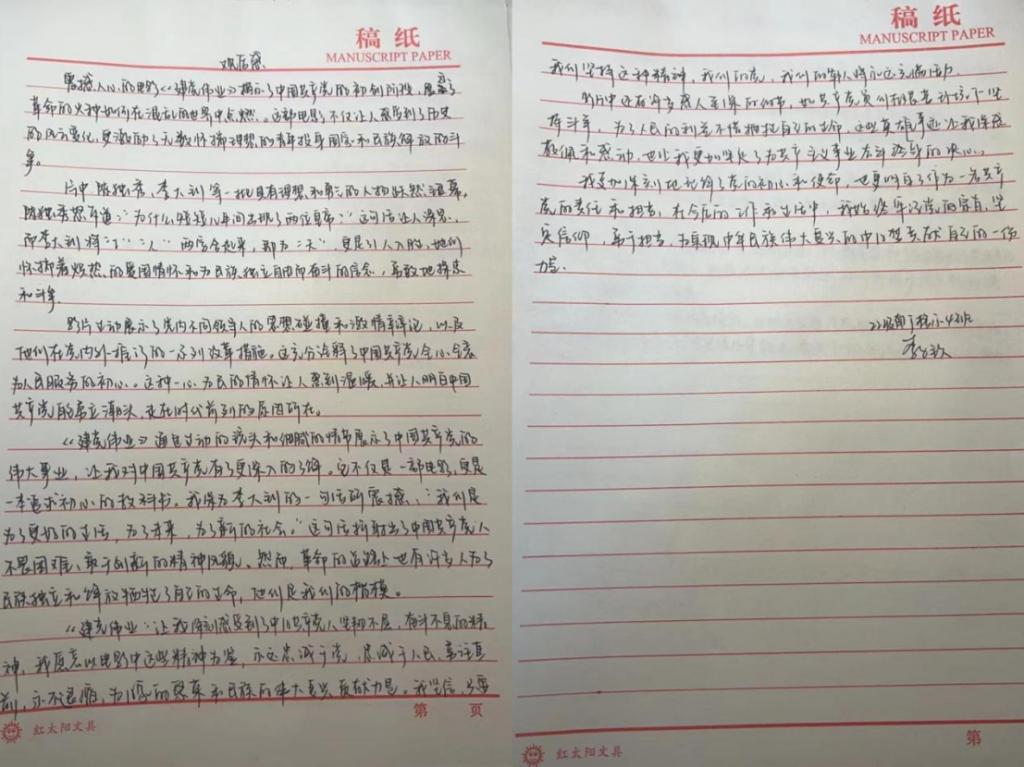 稿纸
MANUSCRIPT PAPER
观后感
震撼人心的电影《建党伟业》揭示了中国共产党的初创阶段,展露了
革命的火种如何在混乱的世界中点燃。这部电影不仅让人感受到了历史
的风云变化,更激励了无数怀揣理想的青年投身国家和民族解放的斗
争。
片中陈独秀,李大钊等一批具有理想和勇气的人物跃然银幕。
陈独秀怒斥道:"为什么短短几年间出现了两位皇帝"这句话让人深思。
而李大钊将"工""人"两字合起来,即为"天",更是引人入胜,他们
怀揣着炽热的爱国情怀和为民族独立自由而奋斗的信念,勇敢地探索
和斗争。
影片生动展示了党内不同领导人的思想碰撞和激情辩论,以及
他们在党内外推行的一系列改革措施。这充分诠释了中国共产党全心全意
为人民服务的初心。这种一心为民的情怀让人感到温暖,并让人明白中国
共产党能屹立潮头,走在时代前列的原因所在。
《建党伟业》通过生动的镜头和细腻的情节展示了中国共产党的
伟大事业,让我对中国共产党有了更深入的了解。它不仅是一部电影,更是
一本追求初心的教科书。我深为李大钊的一句话所震撼:"我们是
为了更好的生活,为了未来,为了新的社会。"这句话折射出了中国共产党人
不畏困难、敢于创新的精神风貌。然而,革命的道路上也有许多人为了
民族独立和解放牺牲了自己的生命,他们是我们的楷模。
《建党伟业》让我深刻感受到了中国共产党人坚韧不屈,奋斗不息的精
神,我愿意以电影中这些精神为鉴,永远忠诚于党,忠诚于人民,勇往直
前,永不退缩,为国家的繁荣和民族的伟大复兴贡献力量。我坚信,只要
第 页
红太阳文具
稿纸
MANUSCRIPT PAPER
我们坚持这种精神,我们的党,我们的军人将永远充满活力。
影片中还有许多感人至深的细节,如共产党员们在恶劣环境下坚
持斗争,为了人民的利益不惜牺牲自己的生命,这些英雄事迹让我深感
敬佩和感动,也让我更加坚定了为共产主义事业奋斗终身的决心。
我更加深刻地理解了党的初心和使命,也更明白了作为一名共产
党的责任和担当,在今后的工作和生活中,我始终牢记党的宗旨,坚
定信仰,勇于担当,为实现中华民族伟大复兴的中国梦贡献自己的一份
力量。
第
红太阳文具